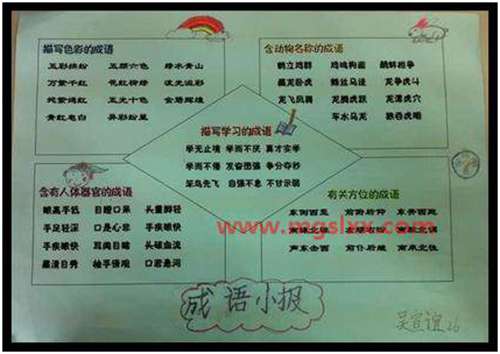 描写色彩的成语
五彩缤纷 五颜六色 绿水青山
万紫千红 花红柳绿 波光溢彩
姹紫嫣红 五光十色 金碧辉煌
青红皂白 异彩纷呈
含动物名称的成语
鹤立鸡群 鸡鸣狗盗 鹬蚌相争
藏龙卧虎 蛛丝马迹 龙争虎斗
龙飞凤舞 龙腾虎跃 龙潭虎穴
车水马龙 狼吞虎咽
描写学习的成语
学无止境 学而不厌 真才实学
学而不倦 发奋图强 争分夺秒
笨鸟先飞 自强不息 不甘示弱
含有人体器官的成语
眼高手低 目瞪口呆 头重脚轻
手足轻深 口是心非 手疾眼快
手疾眼快 耳闻目睹 头破血流
眉清目秀 袖手傍观 口若悬河
有关方位的成语
东倒西歪 前俯后仰 东奔西跑
声东击西 前仆后继 南来北往
www.mgslxx.com
成语小报
吴宣谊 26